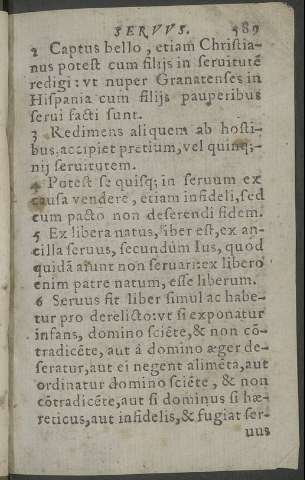 SERVVS. 589
2 Captus bello, etiam Christia-
nus potest cum filijs in seruitutē
redigi: vt nuper Granatenses in
Hispania cum filijs pauperibus
serui facti sunt.
3 Redimens aliquem ab hosti-
bus, accipiet pretium, vel quinq;̄-
nij seruitutem.
4 Potest se quisq; in seruum ex
causa vendere, etiam infideli, sed
cum pacto non deserendi fidem.
5 Ex libera natus, liber est, ex an-
cilla seruus, secundùm Ius, quod
quidā aiunt non seruari: ex libero
enim patre natum, esse liberum.
6 Seruus fit liber simul ac habe-
tur pro derelicto: vt si exponatur
infans, domino sciēte, & non cō-
tradicēte, aut à domino æger de-
seratur, aut ei negent alimēta, aut
ordinatur domino sciēte, & non
cōtradicēte, aut si dominus si hæ-
reticus, aut infidelis, & fugiat ser-
uus